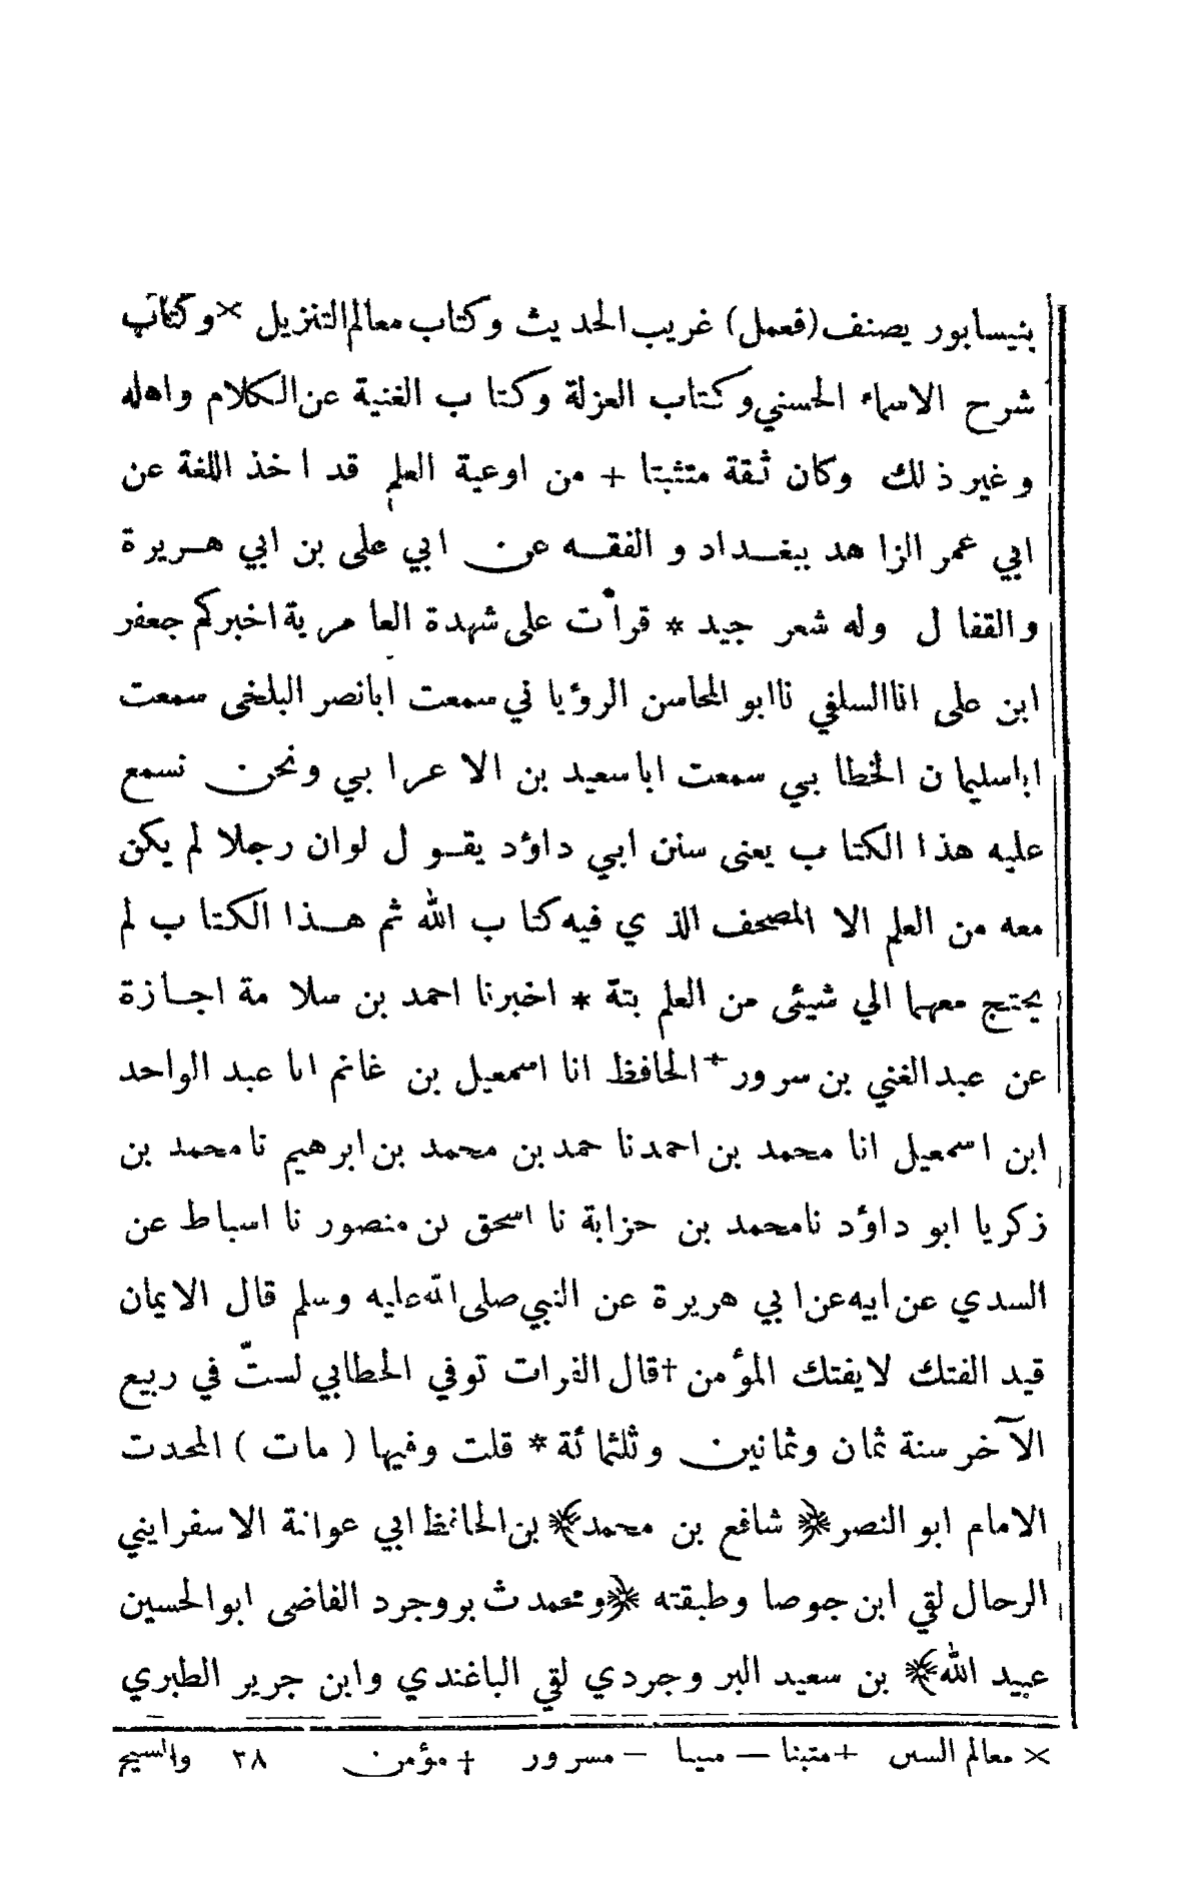 بنيسابور يصنف (فعمل) غريب الحديث وكتاب معالم التنزيل × وكتاب
شرح الاسماء الحسني وكتاب العزلة وكتاب الغنية عن الكلام واهله
وغير ذلك وكان ثقة متثبتا + من اوعية العلم قد اخذ اللغة عن
ابي عمر الزاهد ببغداد و الفقه عن ابي على بن ابي هريرة
والقفال وله شعر جيد * قرأت على شهدة العامرية اخبركم جعفر
ابن على انا السلفي نا ابو المحاسن الرؤياني سمعت ابا نصر البلخى سمعت
ابا سليمان الخطابي سمعت ابا سعيد بن الاعرابي ونحن نسمع
عليه هذا الكتاب يعنى سنن ابي داؤد يقول لو ان رجلا لم يكن
معه من العلم الا المصحف الذي فيه كتاب الله ثم هذا الكتاب لم
يحتج معهما الي شيئى من العلم بتة * اخبرنا احمد بن سلامة اجازة
عن عبد الغني بن سرور + الحافظ انا اسمعيل بن غانم انا عبد الواحد
ابن اسمعيل انا محمد بن احمد نا حمد بن محمد بن ابرهيم نا محمد بن
زكريا ابو داؤد نا محمد بن حزابة نا اسحق بن منصور نا اسباط عن
السدي عن ابيه عن ابي هريرة عن النبي صلى الله عليه وسلم قال الايمان
قيد الفتك لا يفتك المؤمن † قال القرات توفي الخطابي لستّ في ربيع
الآخر سنة ثمان وثمانين وثلثمائة * قلت وفيها ( مات ) المحدث
الامام ابو النصر ﴿ شافع بن محمد ﴾ بن الحافظ ابي عوانة الاسفرايني
الرحال لقي ابن جوصا وطبقته ﴿ ومحمدث بروجرد القاضى ابو الحسين
عبيد الله ﴾ بن سعيد البروجردي لقي الباغندي وابن جرير الطبري
× معالم السنن + متبنا — — مسرور † مؤمن ٣٨